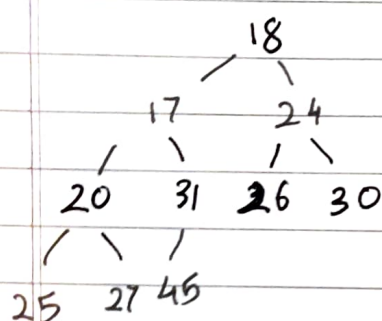 18
17 24
20 31 26 30
25 27 45